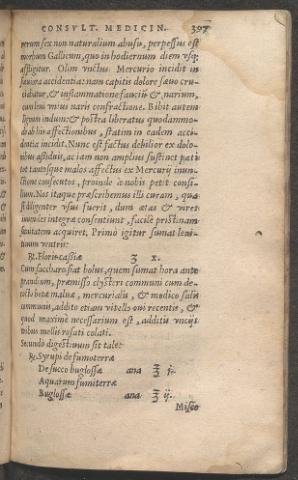 CONSVLT. MEDICIN. 397
rerum sex non naturalium abusu, perpessus est
morbum Gallicum, quo in hodiernum diem vsq;
affligitur. Olim vnctus Mercurio incidit in
sæuiora accidentia: nam capitis dolore sæuo cru-
ciabatur, & inflammatione faucium & narium,
cum leui vnius naris confractione. Bibit autem
lignum indum: & postea liberatus quodammo-
do ab his affectionibus, statim in eadem acci-
dentia incidit. Nunc est factus debilior ex dolo-
ribus assiduis, ac iam non amplius sustinet pati
tot tantosque malos affectus ex Mercurij inun-
ctione consecutos, proinde à nobis petit consi-
lium. Nos itaque præscribemus illi curam, qua
si diligenter vsus fuerit, dum ætas & vires
integræ consentiunt, facilè pristinam
sanitatem acquiret. Primò igitur sumat leni-
tiuum ventris:
℞. Floris cassiæ ℥ x.
Cum saccharo fiat bolus, quem sumat hora ante
prandium, præmisso clysteri communi cum de-
cocto betæ maluæ, mercurialis, & modico salis
communis, addito etiam vitello oui recentis, &
quod maximè necessarium est, additis vncijs
tribus mellis rosati colati.
Secundò digestiuum sit tale:
℞. Syrupi de fumoterræ
De succo buglossæ ana ℥ j.
Aquarum fumiterræ
Buglossæ ana ℥ ij.
Misce